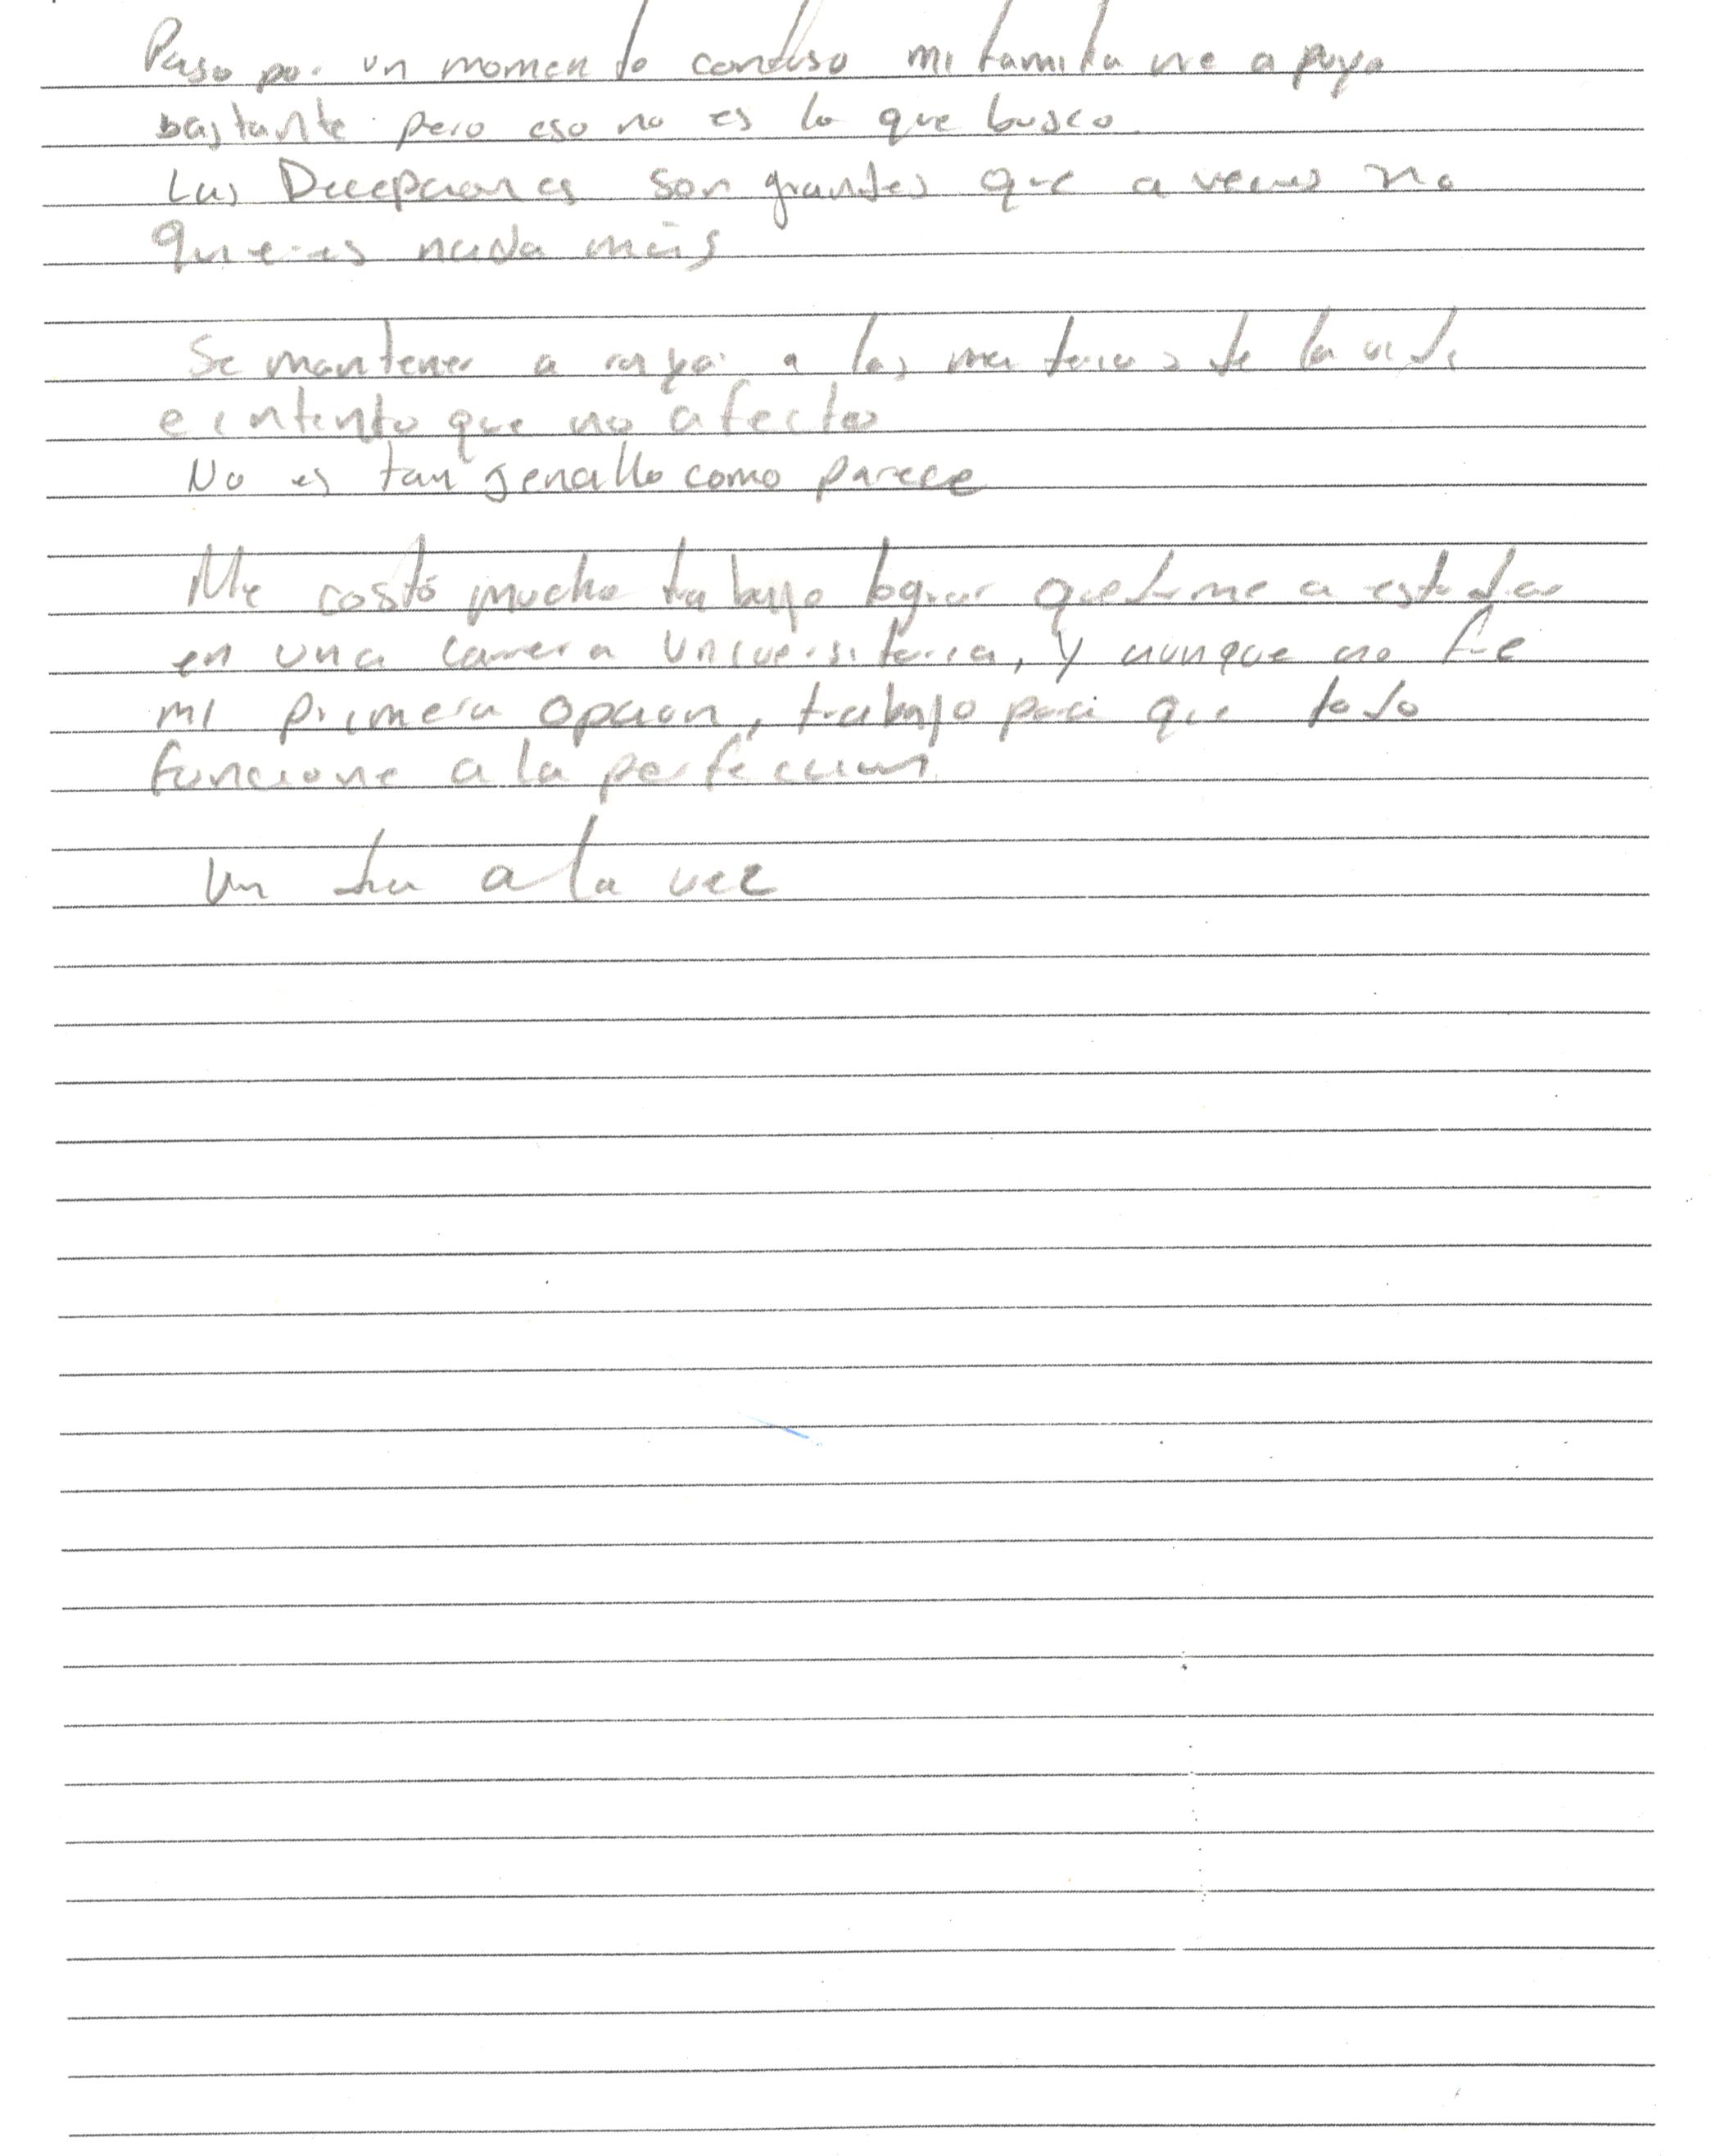 Paso por un momento confuso mi familia me apoya
bastante pero eso no es lo que busco
Las Decepciones son grandes que a veces no
quieres nada más
Se mantener a raya a las materias de la vida
e intento que no afecten
No es tan sencillo como parece
Me costó mucho trabajo lograr quedarme a estudiar
en una carrera Universitaria, y aunque no fue
mi primera opcion, trabajo para que todo
funcione a la perfeccion
Un dia a la vez